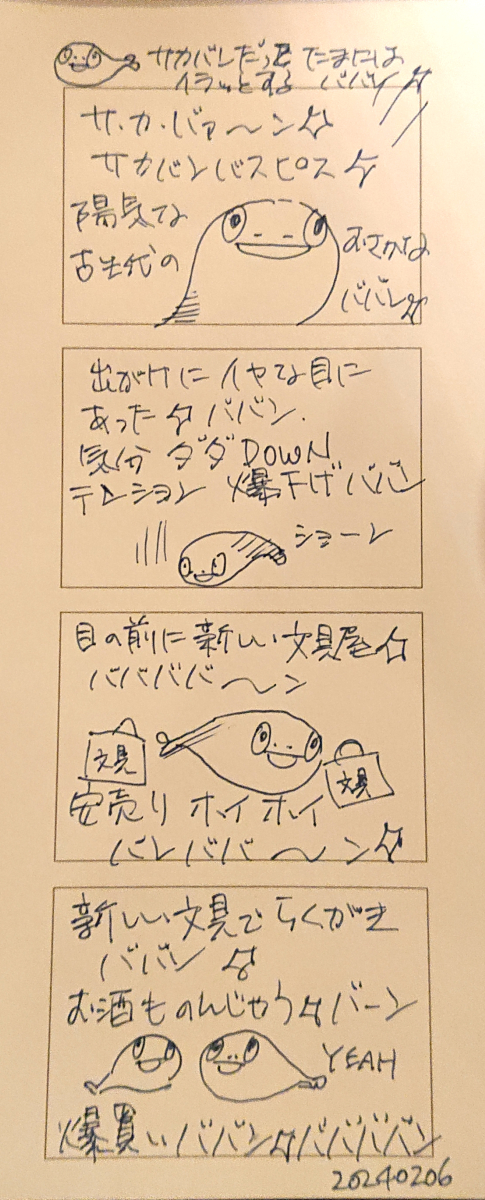 サカバンだって たまには
イラッとする ババン☆
サ・カ・バァ〜ン☆
サカバンバスピス☆
陽気な
古生代の
おさかな
ババン☆
出がけに イヤな目に
あった☆ ババン.
気分 ダダDOWN
テンション 爆下げ ババン
ショーン
目の前に新しい文具屋☆
ババババ〜ン
文具
文具
安売り ホイホイ
バンババ〜ン☆
新しい文具で らくがき
ババン☆
お酒ものんじゃう☆バーン
YEAH
爆買い ババン☆ババババン
20240206